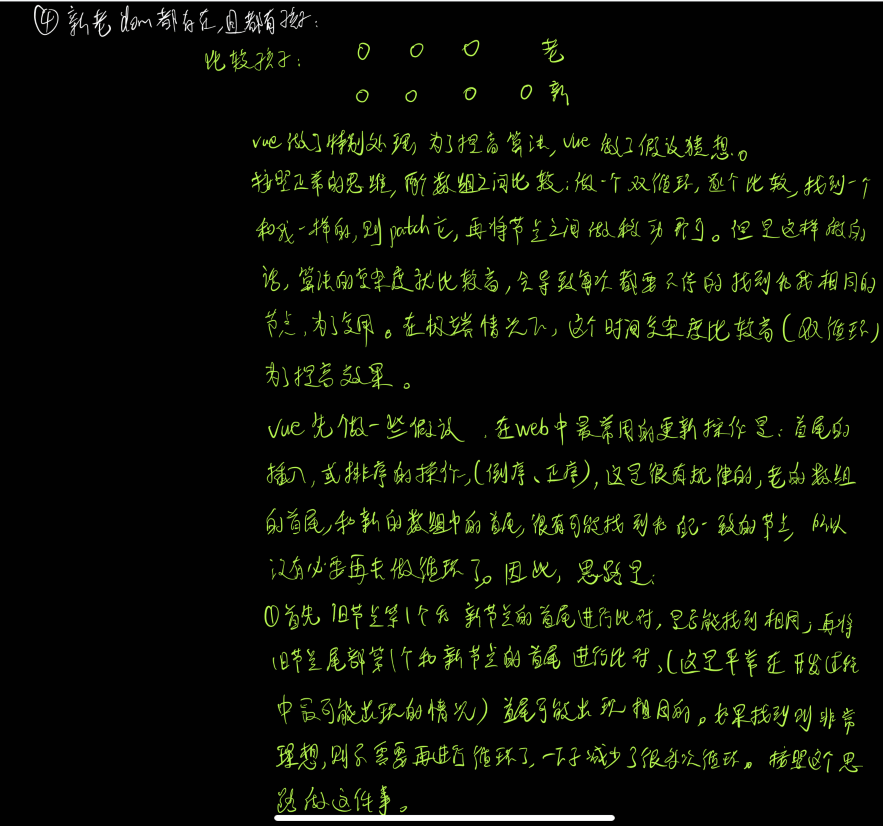 ④ 新老dom都存在,且都有孩子:
比较孩子: 老
新
vue做了特别处理,为了提高算法,vue做了假设猜想。
按照正常的思维,两个数组之间比较:做一个双循环,逐个比较,找到一个
和我一样的,则patch它,再将节点之间做移动即可。但是这样做的
话,算法的复杂度就比较高,会导致每次都要不停的找到和我相同的
节点,为了复用。在极端情况下,这个时间复杂度比较高(双循环)
为了提高效果。
vue先做一些假设,在web中最常用的更新操作是:首尾的
插入,或排序的操作,(倒序、正序),这是很有规律的,老的数组
的首尾,和新的数组中的首尾,很有可能找到和配一致的节点,所以
没有必要再去做循环了。因此,思路是:
①首先旧节点第1个和新节点的首尾进行比对,是否能找到相同,再将
旧节点尾部第1个和新节点的首尾进行比对,(这是平常在开发过程
中最可能出现的情况)首尾可能出现相同的。如果找到则非常
理想,则不需要再进行循环了,一下子减少了很多次循环。按照这个思
路做这件事。